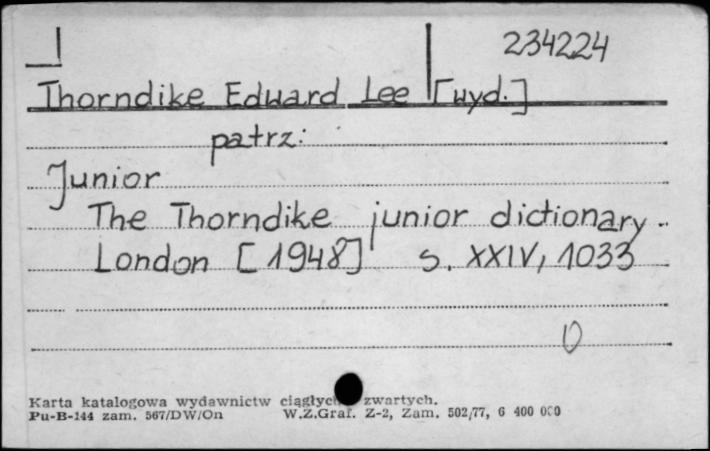 I
234224
Thorndike Eduard Lee [wyd.]
patrz:
Junior
The Thorndike junior dictionary.
London [1948] s. XXIV, 1033
Karta katalogowa wydawnictw zwartych.
Pu-B-144 zam. 567/DW/On W.Z.Graf. Z-2, Zam. 502/77, 6 400 000